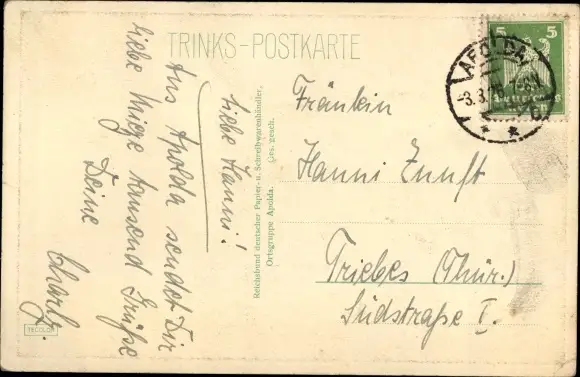 TRINKS-POSTKARTE
Liebe Hanni!
Aus Apolda sendet Dir
liebe Miege tausend Grüße
Deine
Charly.
Reichsbund deutscher Papier- u. Schreibwarenhändler,
Ortsgruppe Apolda. Ges. gesch.
Fräulein
Hanni Zunft
Triebes (Thür.)
Südstraße I.
APOLDA
-3.3.26
5 5